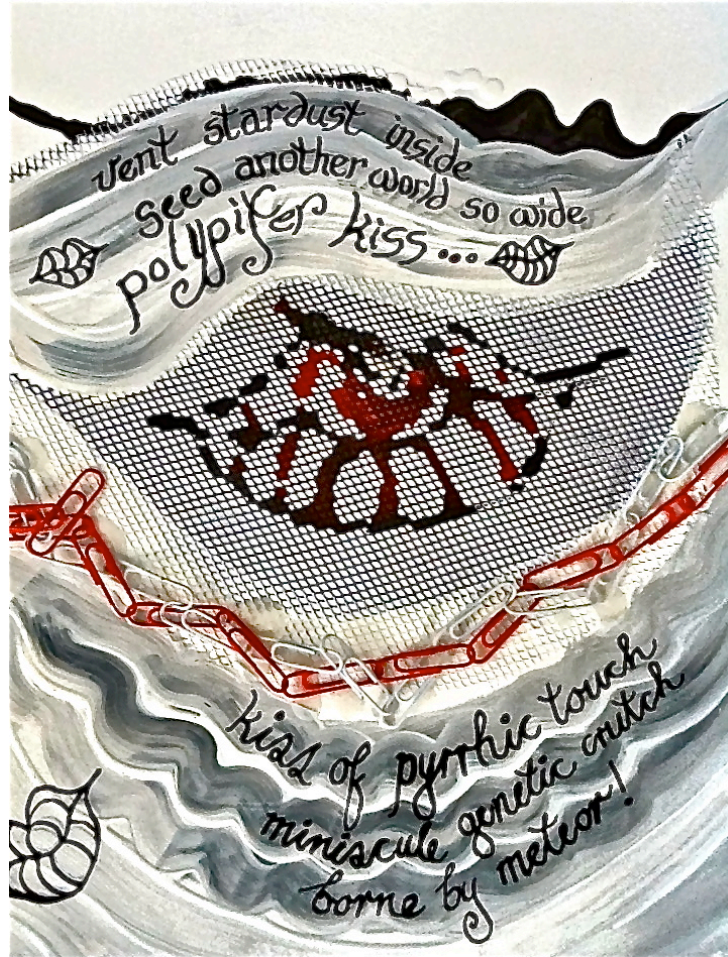 vent stardust inside
seed another world so wide
polypifer kiss...
kiss of pyrrhic touch
miniscule genetic crutch
borne by meteor!